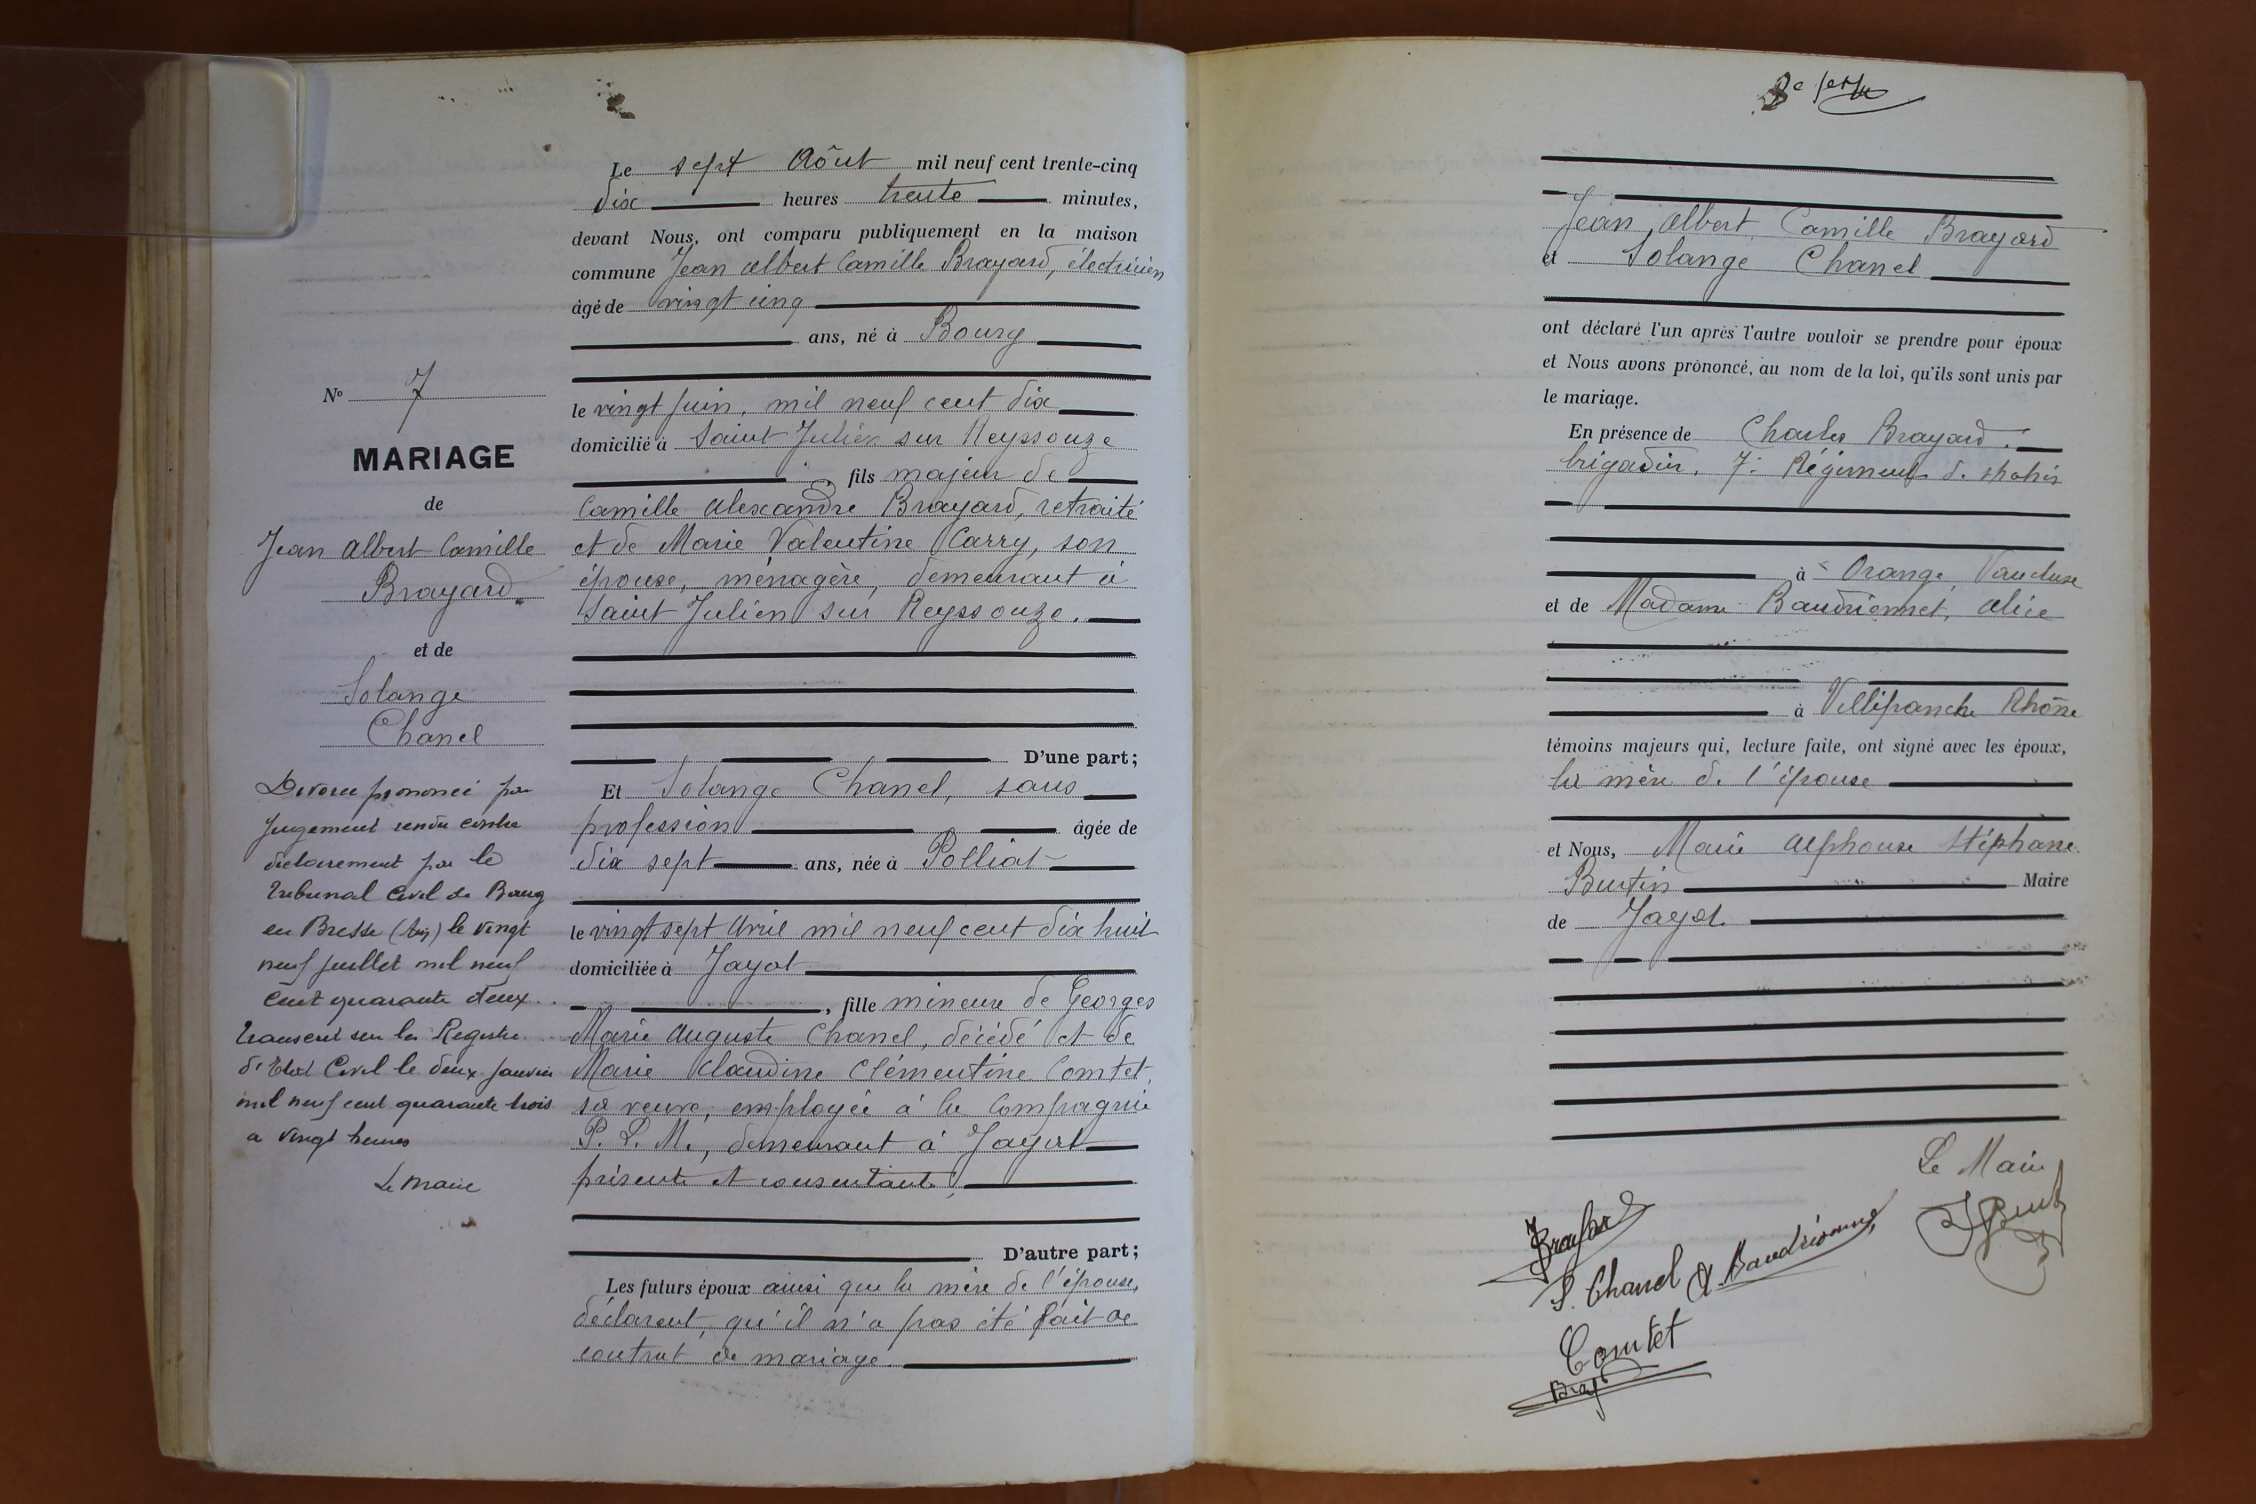 Le sept Août mil neuf cent trente-cinq
dix heures trente minutes,
devant Nous, ont comparu publiquement en la maison
commune Jean Albert Camille Brayard, électricien
âgé de vingt cinq
ans, né à Bourg
le vingt juin, mil neuf cent dix
domicilié à Saint Julien sur Reyssouze
, fils majeur de
Camille Alexandre Brayard, retraité
et de Marie Valentine Carry, son
épouse, ménagère, demeurant à
Saint Julien sur Reyssouze.
D'une part;
Et Solange Chanel, sans
profession âgée de
dix sept ans, née à Polliat
le vingt sept Avril mil neuf cent dix huit
domiciliée à Jayat
, fille mineure de Georges
Marie Auguste Chanel, décédé et de
Marie Claudine Clémentine Comtet,
sa veuve, employée à la Compagnie
P. L. M., demeurant à Jayat
présente et consentante,
D'autre part;
Les futurs époux ainsi que la mère de l'épouse,
déclarent, qu'il n'a pas été fait de
contrat de mariage.
No 7
MARIAGE
de
Jean Albert Camille
Brayard
et de
Solange
Chanel
Divorce prononcé par
jugement rendu contra
dictoirement par le
Tribunal Civil de Bourg
en Bresse (Ain) le vingt
neuf juillet mil neuf
cent quarante deux.
Transcrit sur les Registre
d'Etat Civil le deux janvier
mil neuf cent quarante trois
a vingt heures
Le Maire
Jean Albert Camille Brayard
et Solange Chanel
ont déclaré l'un après l'autre vouloir se prendre pour époux
et Nous avons prononcé, au nom de la loi, qu'ils sont unis par
le mariage.
En présence de Charles Brayard.
brigadier, 7e Régiment de spahis
à Orange Vaucluse
et de Madame Baudrionnet, Alice
à Villefranche Rhône
témoins majeurs qui, lecture faite, ont signé avec les époux,
la mère de l'épouse
et Nous, Marie Alphonse Stéphane
Burtin Maire
de Jayat
Le Maire
Brayard
S. Chanel A Baudrionnet
Comtet